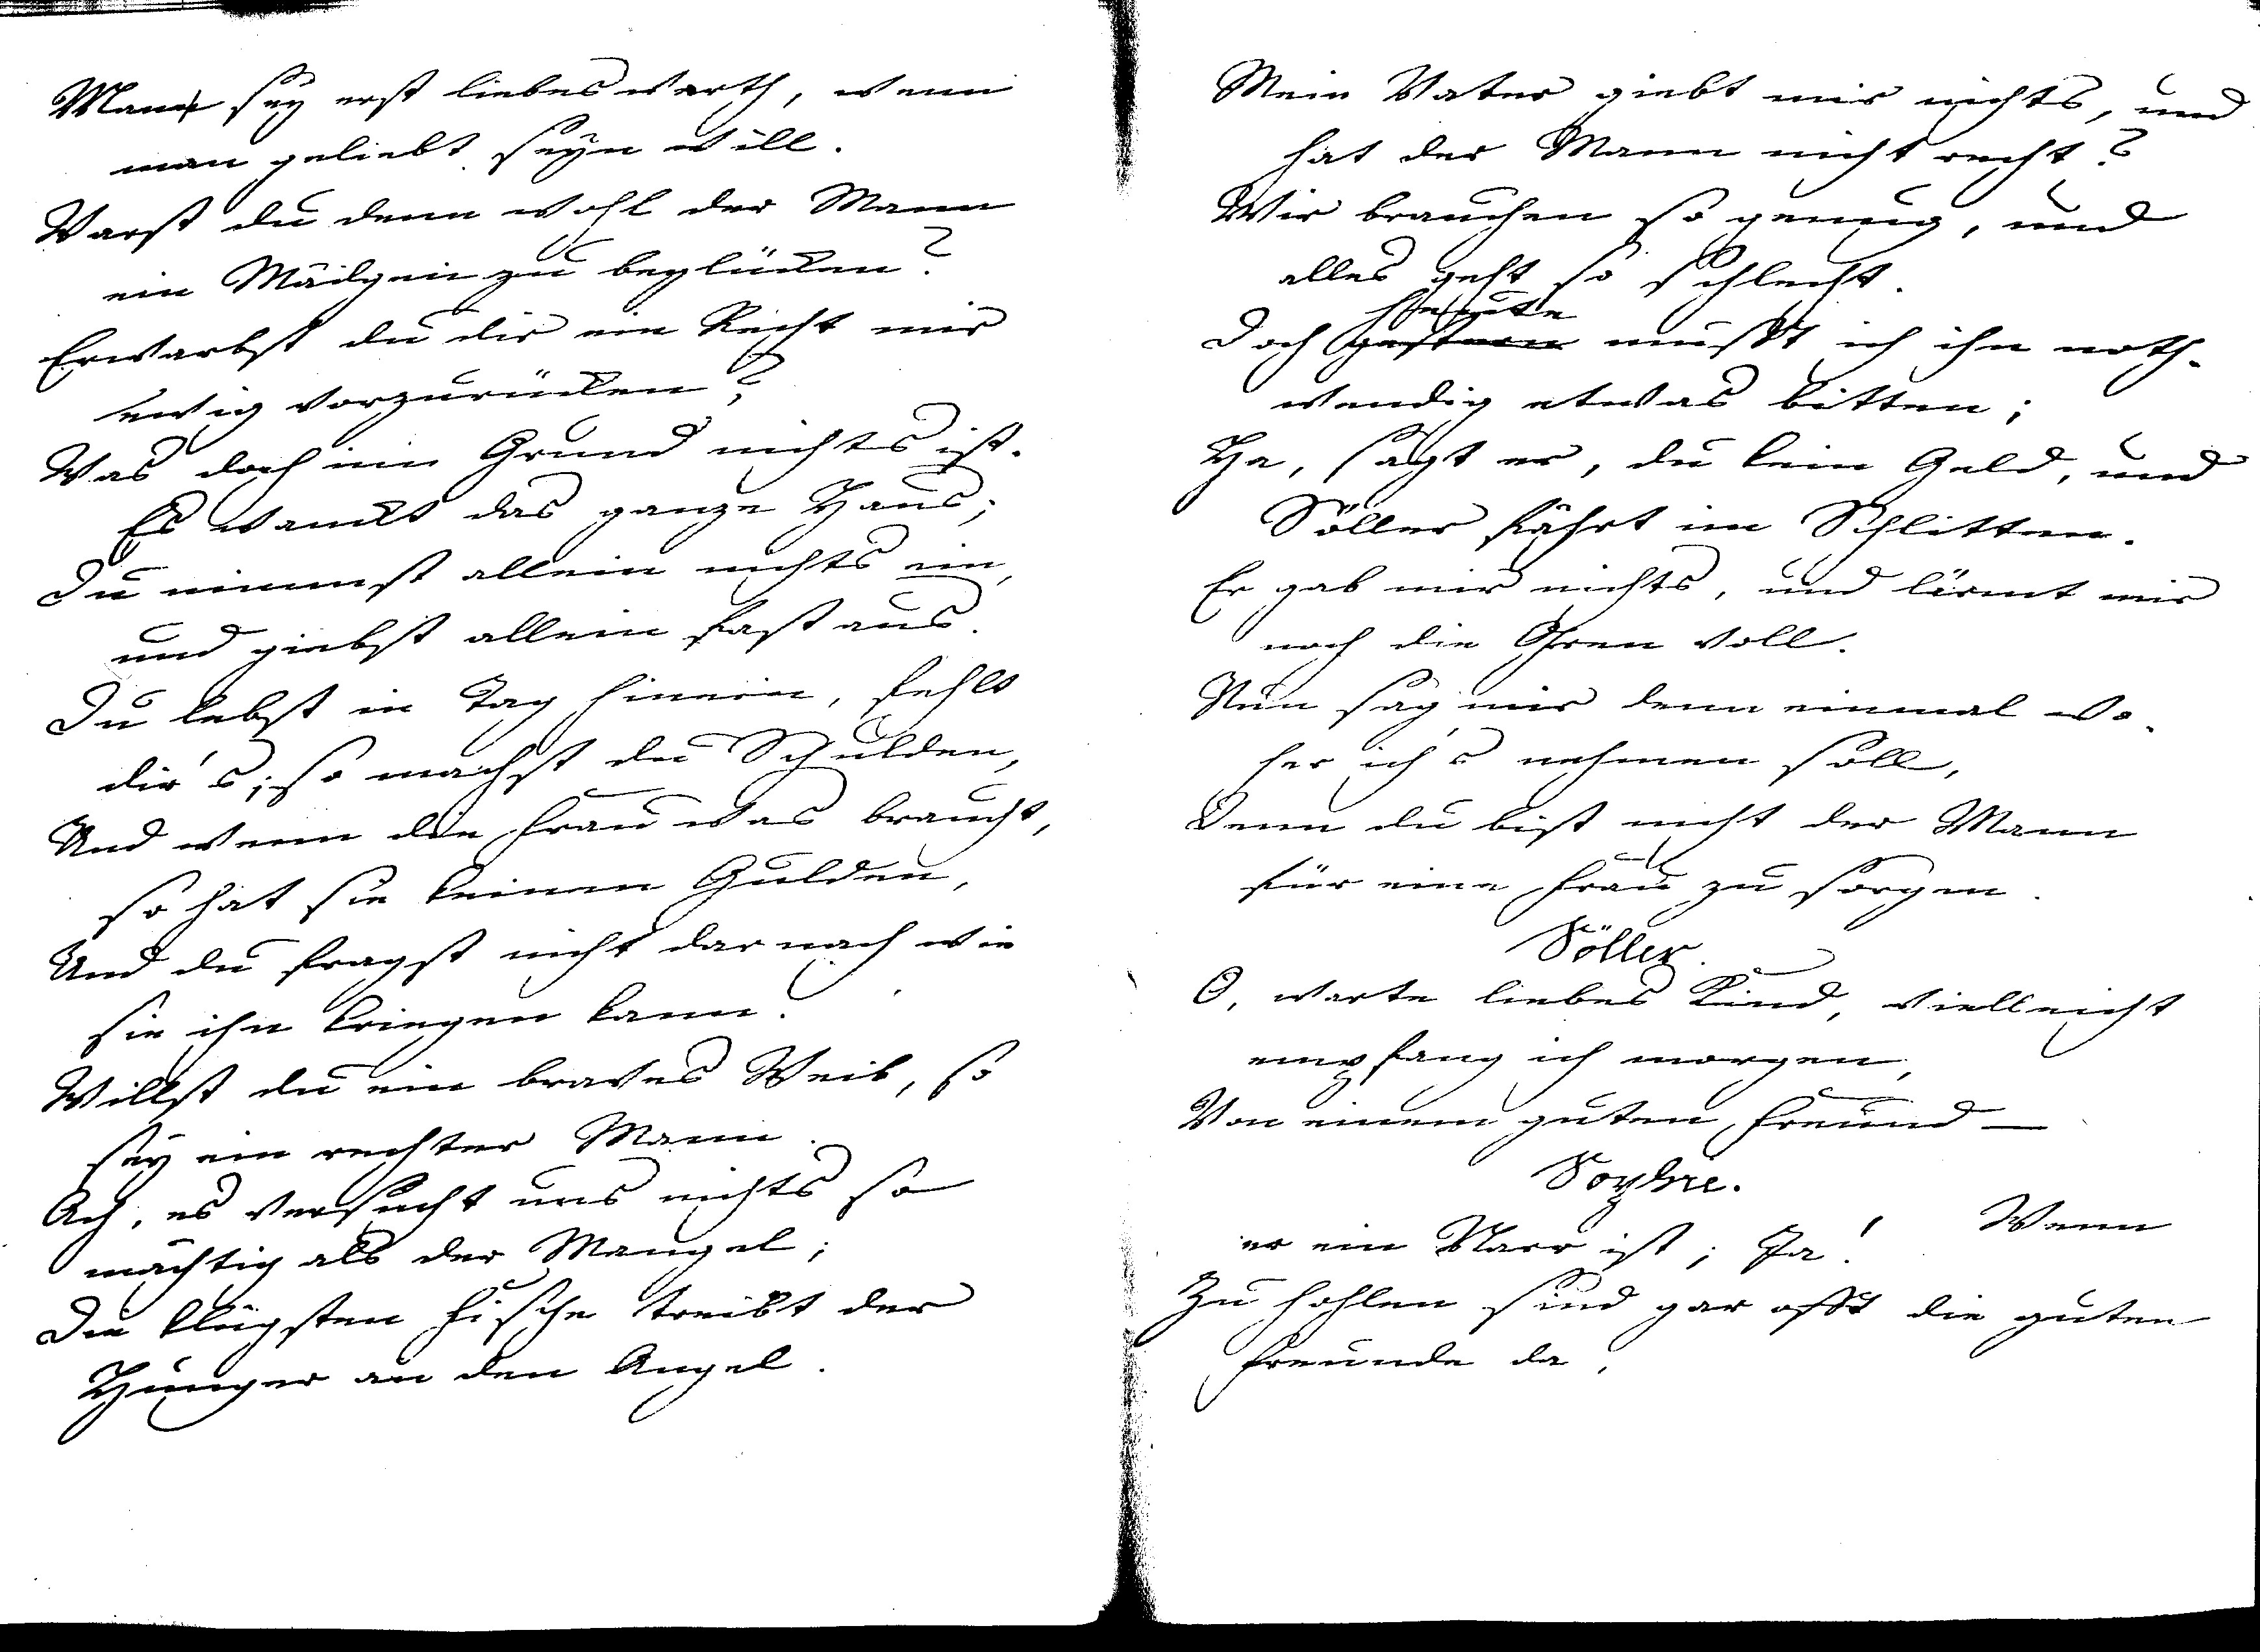 Man sey erst liebenswerth, wenn
man geliebt seyn will.
Warst du denn wohl der Mann
ein Mädgen zu beglücken?
Erwarbst du dir ein Recht mir
ewig vorzurücken?
Was doch im Grund nichts ist.
Es wanckt das ganze Haus;
Du nimmst allein nichts ein,
und giebst allein fast aus.
Du lebst in Tag hinein, fehlt
dir's; so machst du Schulden,
Und wenn die Frau was braucht,
so hat sie keinen Gulden,
Und du fragst nicht darnach wie
sie ihn kriegen kann.
Willst du ein braves Weib, so
sey ein rechter Mann.
Ach, es versucht uns nichts so
mächtig als der Mangel;
Die klügsten Fische treibt der
Hunger an den Angel.
Mein Vater giebt mir nichts, und
hat der Mann nicht recht?
Wir brauchen so genug, und
alles geht so schlecht.
heute
Doch gestern mußt ich ihn noth-
wendig etwas bitten;
Ha, sagt er, du kein Geld, und
Söller fährt im Schlitten.
Er gab mir nichts, und lärmt mir
noch die Ohren voll.
Nun sag mir denn einmal wo-
her ich's nehmen soll,
Denn du bist nicht der Mann
für eine Frau zu sorgen.
Söller.
O, warte liebes Kind, vielleicht
empfang ich morgen,
Von einem guten Freund —
Sophie.
Wenn
er ein Narr ist; Ja!
Zu hohlen sind gar offt die guten
Freunde da,